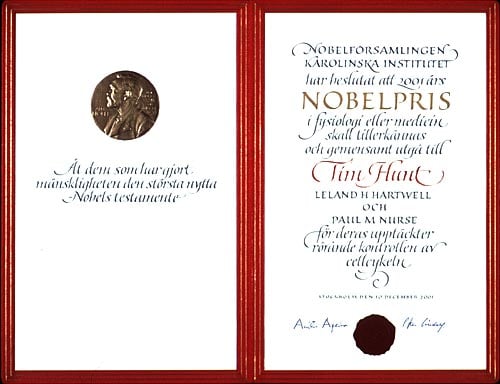 Åt dem som har gjort
mänskligheten den största nytta
Nobels testamente
NOBELFÖRSAMLINGEN
KAROLINSKA INSTITUTET
har beslutat att 2001 års
NOBELPRIS
i fysiologi eller medicin
skall tillerkännas
och gemensamt utgå till
Tim Hunt
LELAND H HARTWELL
OCH
PAUL M NURSE
för deras upptäckter
rörande kontrollen av
cellcykeln
STOCKHOLM DEN 10 DECEMBER 2001